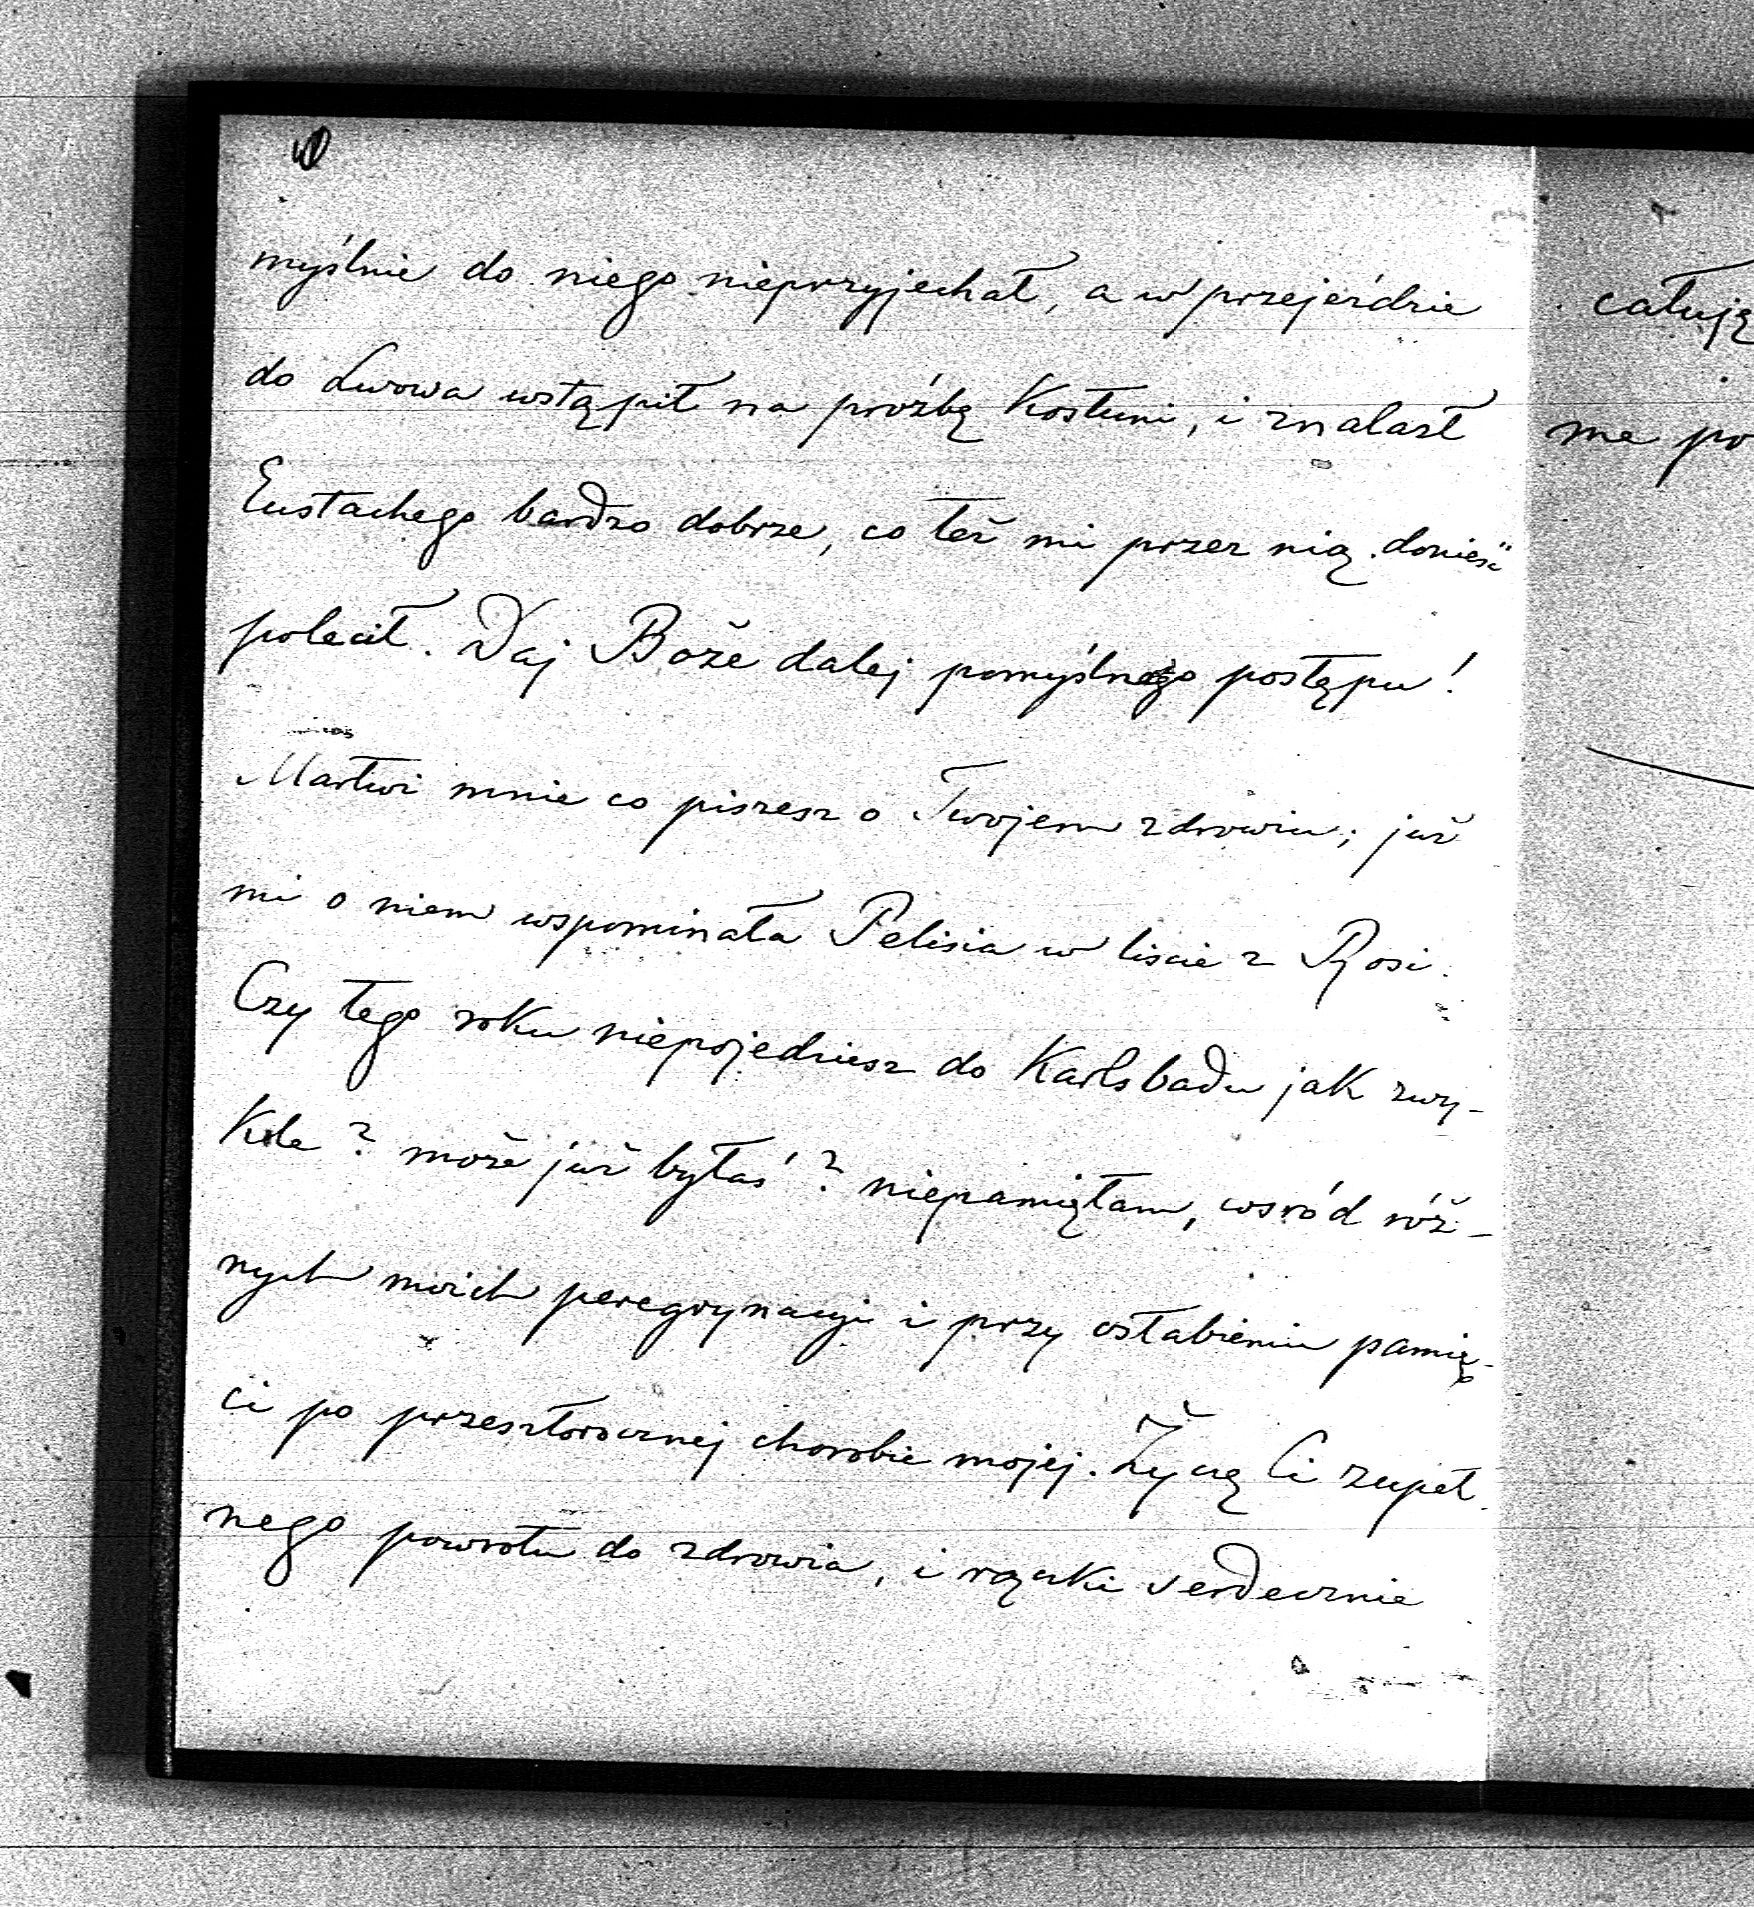 myślnie do niego nieprzyjechał, a w przejeździe
do Lwowa wstąpił na prośbę Kostuni, i znalazł
Eustachego bardzo dobrze, co też mi przez nią donieść
polecił. Daj Boże dalej pomyślnego postępu!
Martwi mnie co piszesz o Twojem zdrowiu; już
mi o niem wspominała Pelisia w liście z Rosi.
Czy tego roku niepojedziesz do Karlsbadu jak zwy-
kle? może już byłaś? niepamiętam, wsród róż-
nych moich peregrynacyi i przy osłabieniu pamię-
ci po przeszłorocznej chorobie mojej. Życzę Ci zupeł
nego powrotu do zdrowia, i rączki serdecznie
całuję
me po